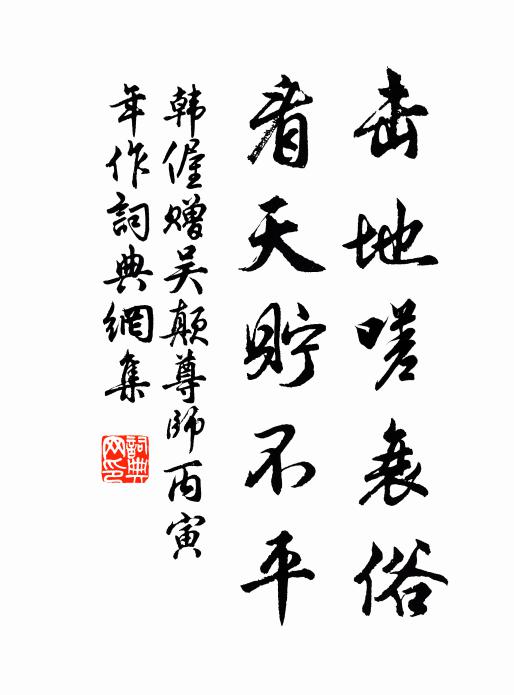 击地嗟衰俗
看天贮不平
韩偓赠吴颠尊师丙寅
年作词典網集
詞典网印